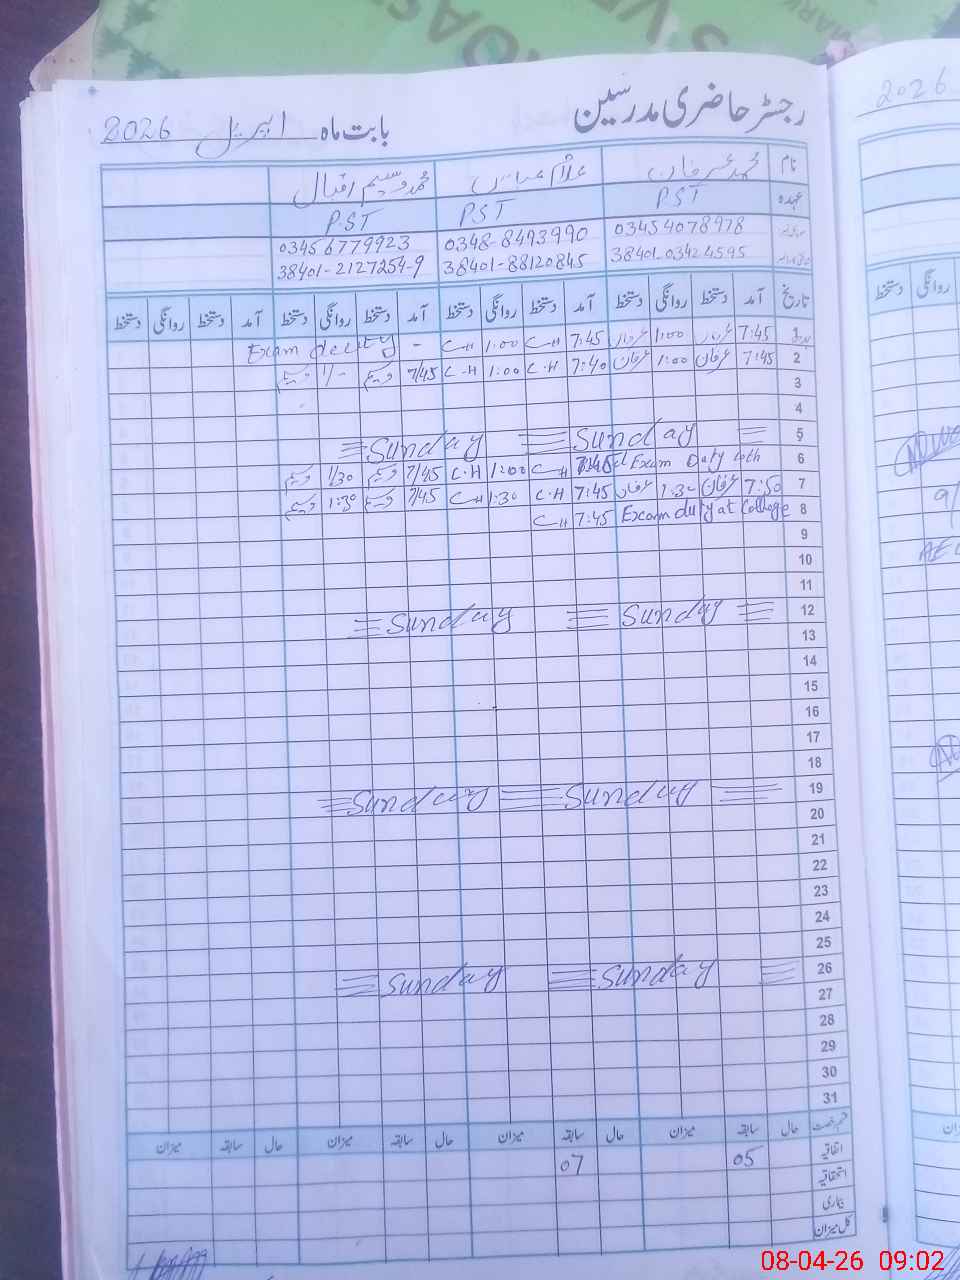 رجسٹر حاضری مدرسین بابت ماہ اپریل 2026
2026
نام محمد عرفان غلام عباس محمد وسیم اقبال
عہدہ PST PST P.ST
03454078978 0348-8493990 03456779923
38401-03424595 38401-88120845 38401-2127254-9
تاریخ آمد دستخط روانگی دستخط آمد دستخط روانگی دستخط آمد دستخط روانگی دستخط آمد دستخط روانگی دستخط
1 7:45 عرفان 1:00 عرفان 7:45 C-H 1:00 C-H - Exam deuty
2 7:45 عرفان 1:00 عرفان 7:40 C.H 1:00 C-H 7/45 وسیم 1/- وسیم
3
4
5 Sunday Sunday
6 Exam Duty 7:45 C-H 1:00 C.H 7/45 وسیم 1/30 وسیم
7 7:50 عرفان 1:30 عرفان 7:45 C.H 1:30 C-H 7/45 وسیم 1:30 وسیم
8 Exam duty at College 7:45 C-H
9
10
11
12 Sunday Sunday
13
14
15
16
17
18
19 Sunday Sunday
20
21
22
23
24
25
26 Sunday Sunday
27
28
29
30
31
قسم رخصت حال سابقہ میزان حال سابقہ میزان حال سابقہ میزان حال سابقہ میزان
اتفاقیہ 05 07
استحقاقیہ
بیماری
کل میزان
08-04-26 09:02